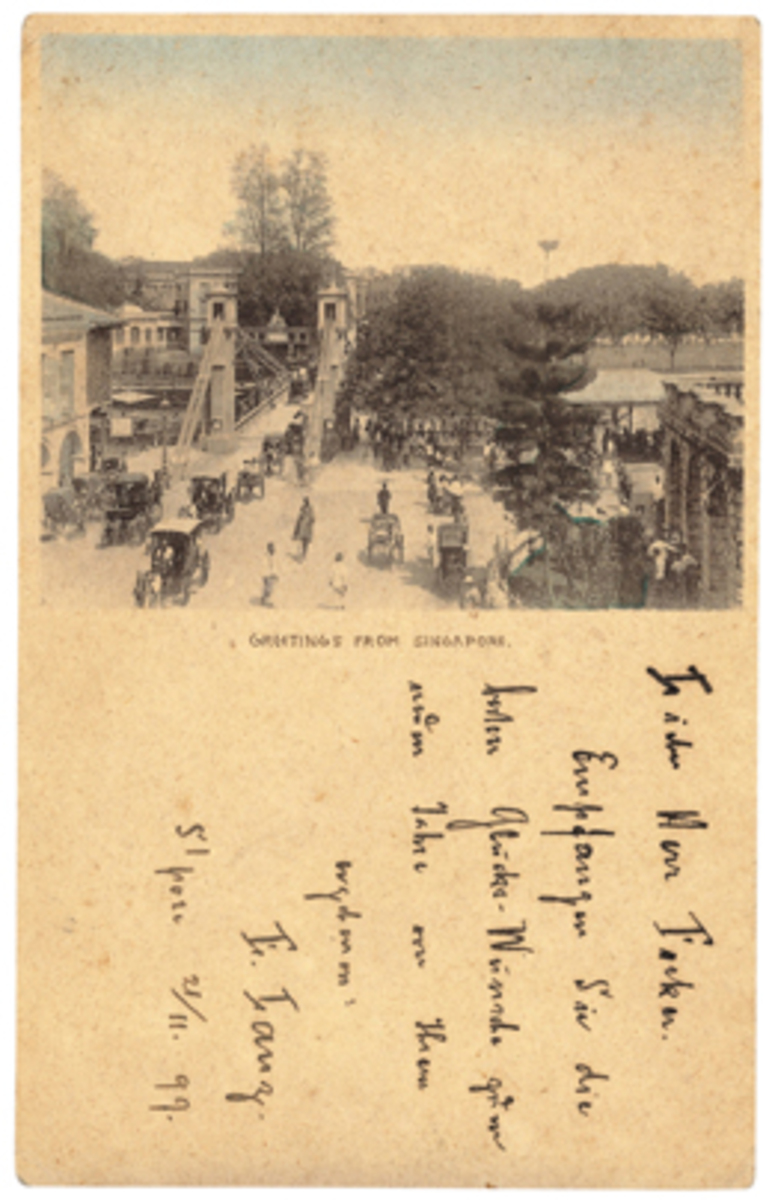 GREETINGS FROM SINGAPORE.
Lieber Herr
Empfangen Sie die
besten Glücks-Wünsche zum
neuen Jahre von Ihrem
ergebenen
Lanz.
S'pore 21/11. 99.